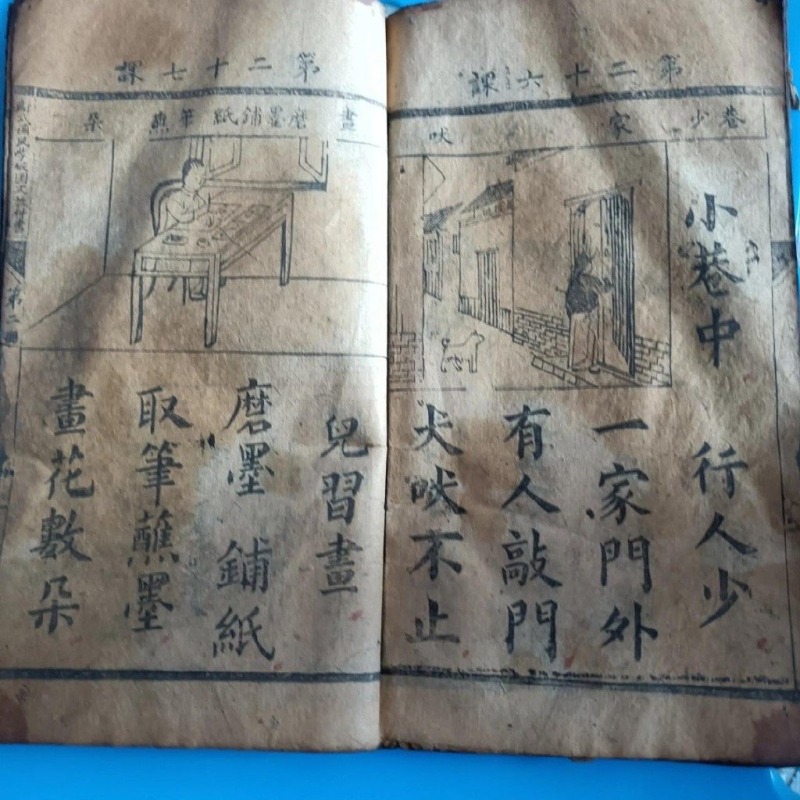 第二十六課
巷少 家 吠
小巷中 行人少
一家門外
有人敲門
犬吠不止
第二十七課
畫 磨墨鋪紙 筆蘸 朵
兒習畫
磨墨 鋪紙
取筆蘸墨
畫花數朵